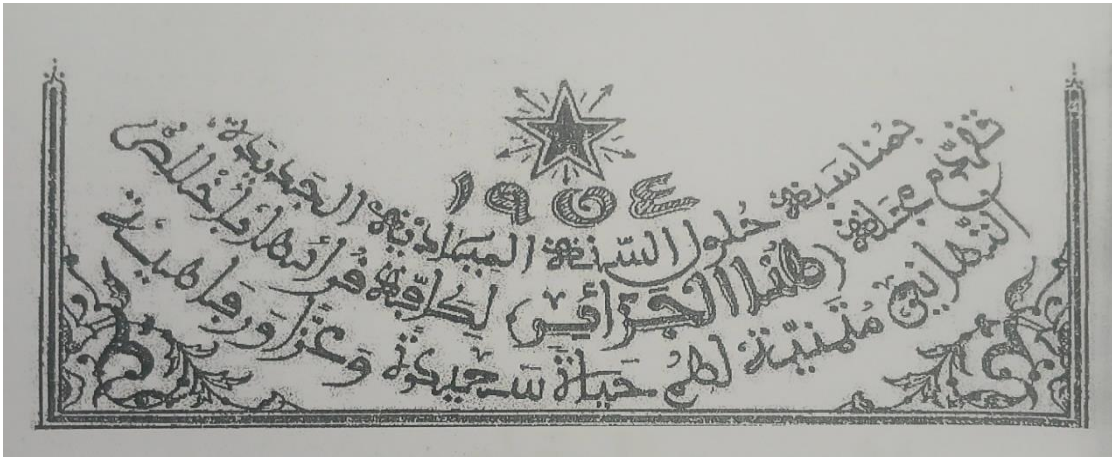 ١٩٥٤
بمُناسَبة حُلول السّنة الميلادية الجديدة
تتقدّم مجَلة (هُنا الجَزائر) لكافّة قُرائها بأخلص
التّهاني مُتمنيّة لهُم حَياةً سَعيدةً وَعزًّا وَرفاهية